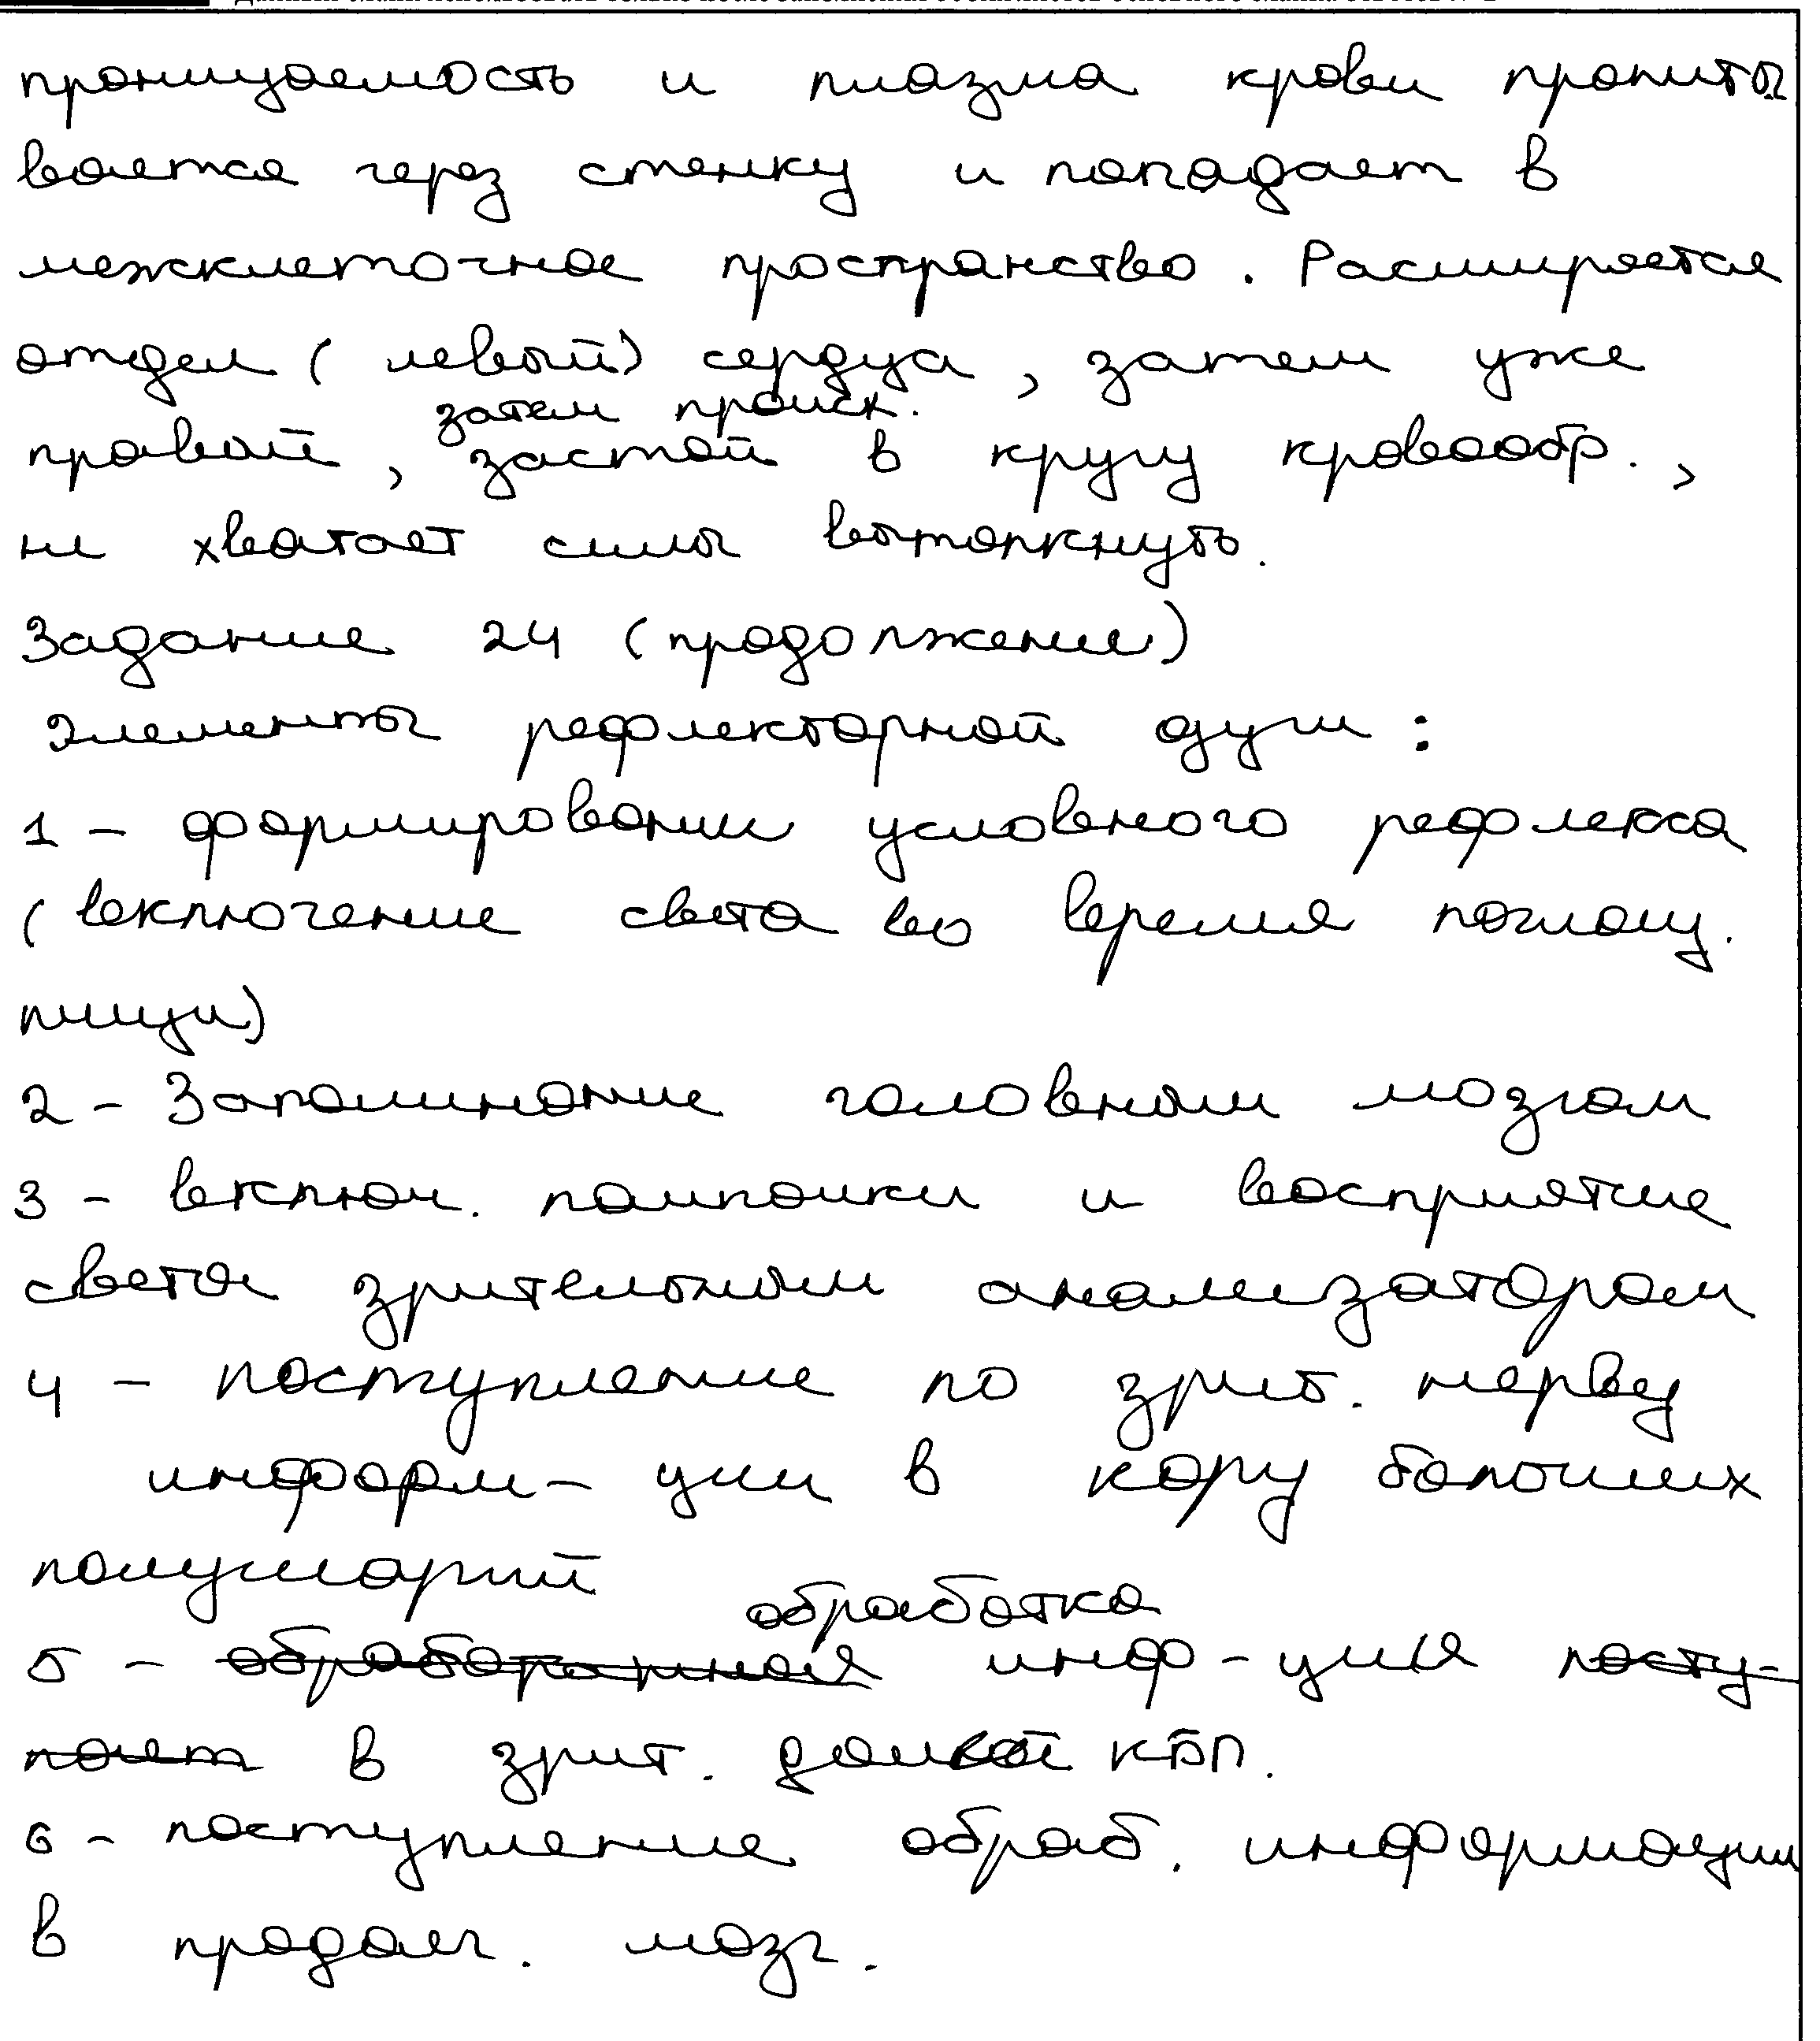 проницаемость и плазма крови пропиты
вается через стенку и попадает в
межклеточное пространство. Расширяется
отдел (левый) сердца, затем уже
затем происх.
правый, застой в кругу кровообр.,
не хватает силы вытолкнуть.
Задание 24 (продолжение)
Элементы рефлекторной дуги:
1 - формировании условного рефлекса
(включение света во время поглощ.
пищи)
2 - Запоминание головным мозгом
3 - включ. лампочки и восприятие
света зрительным анализатором
4 - поступление по зрит. нерву
информ- ции в кору больших
полушарий
обработка
5 - обработанная инф-ция посту-
пает в зрит. долей КБП.
6 - поступление обраб. информации
в продолг. мозг.